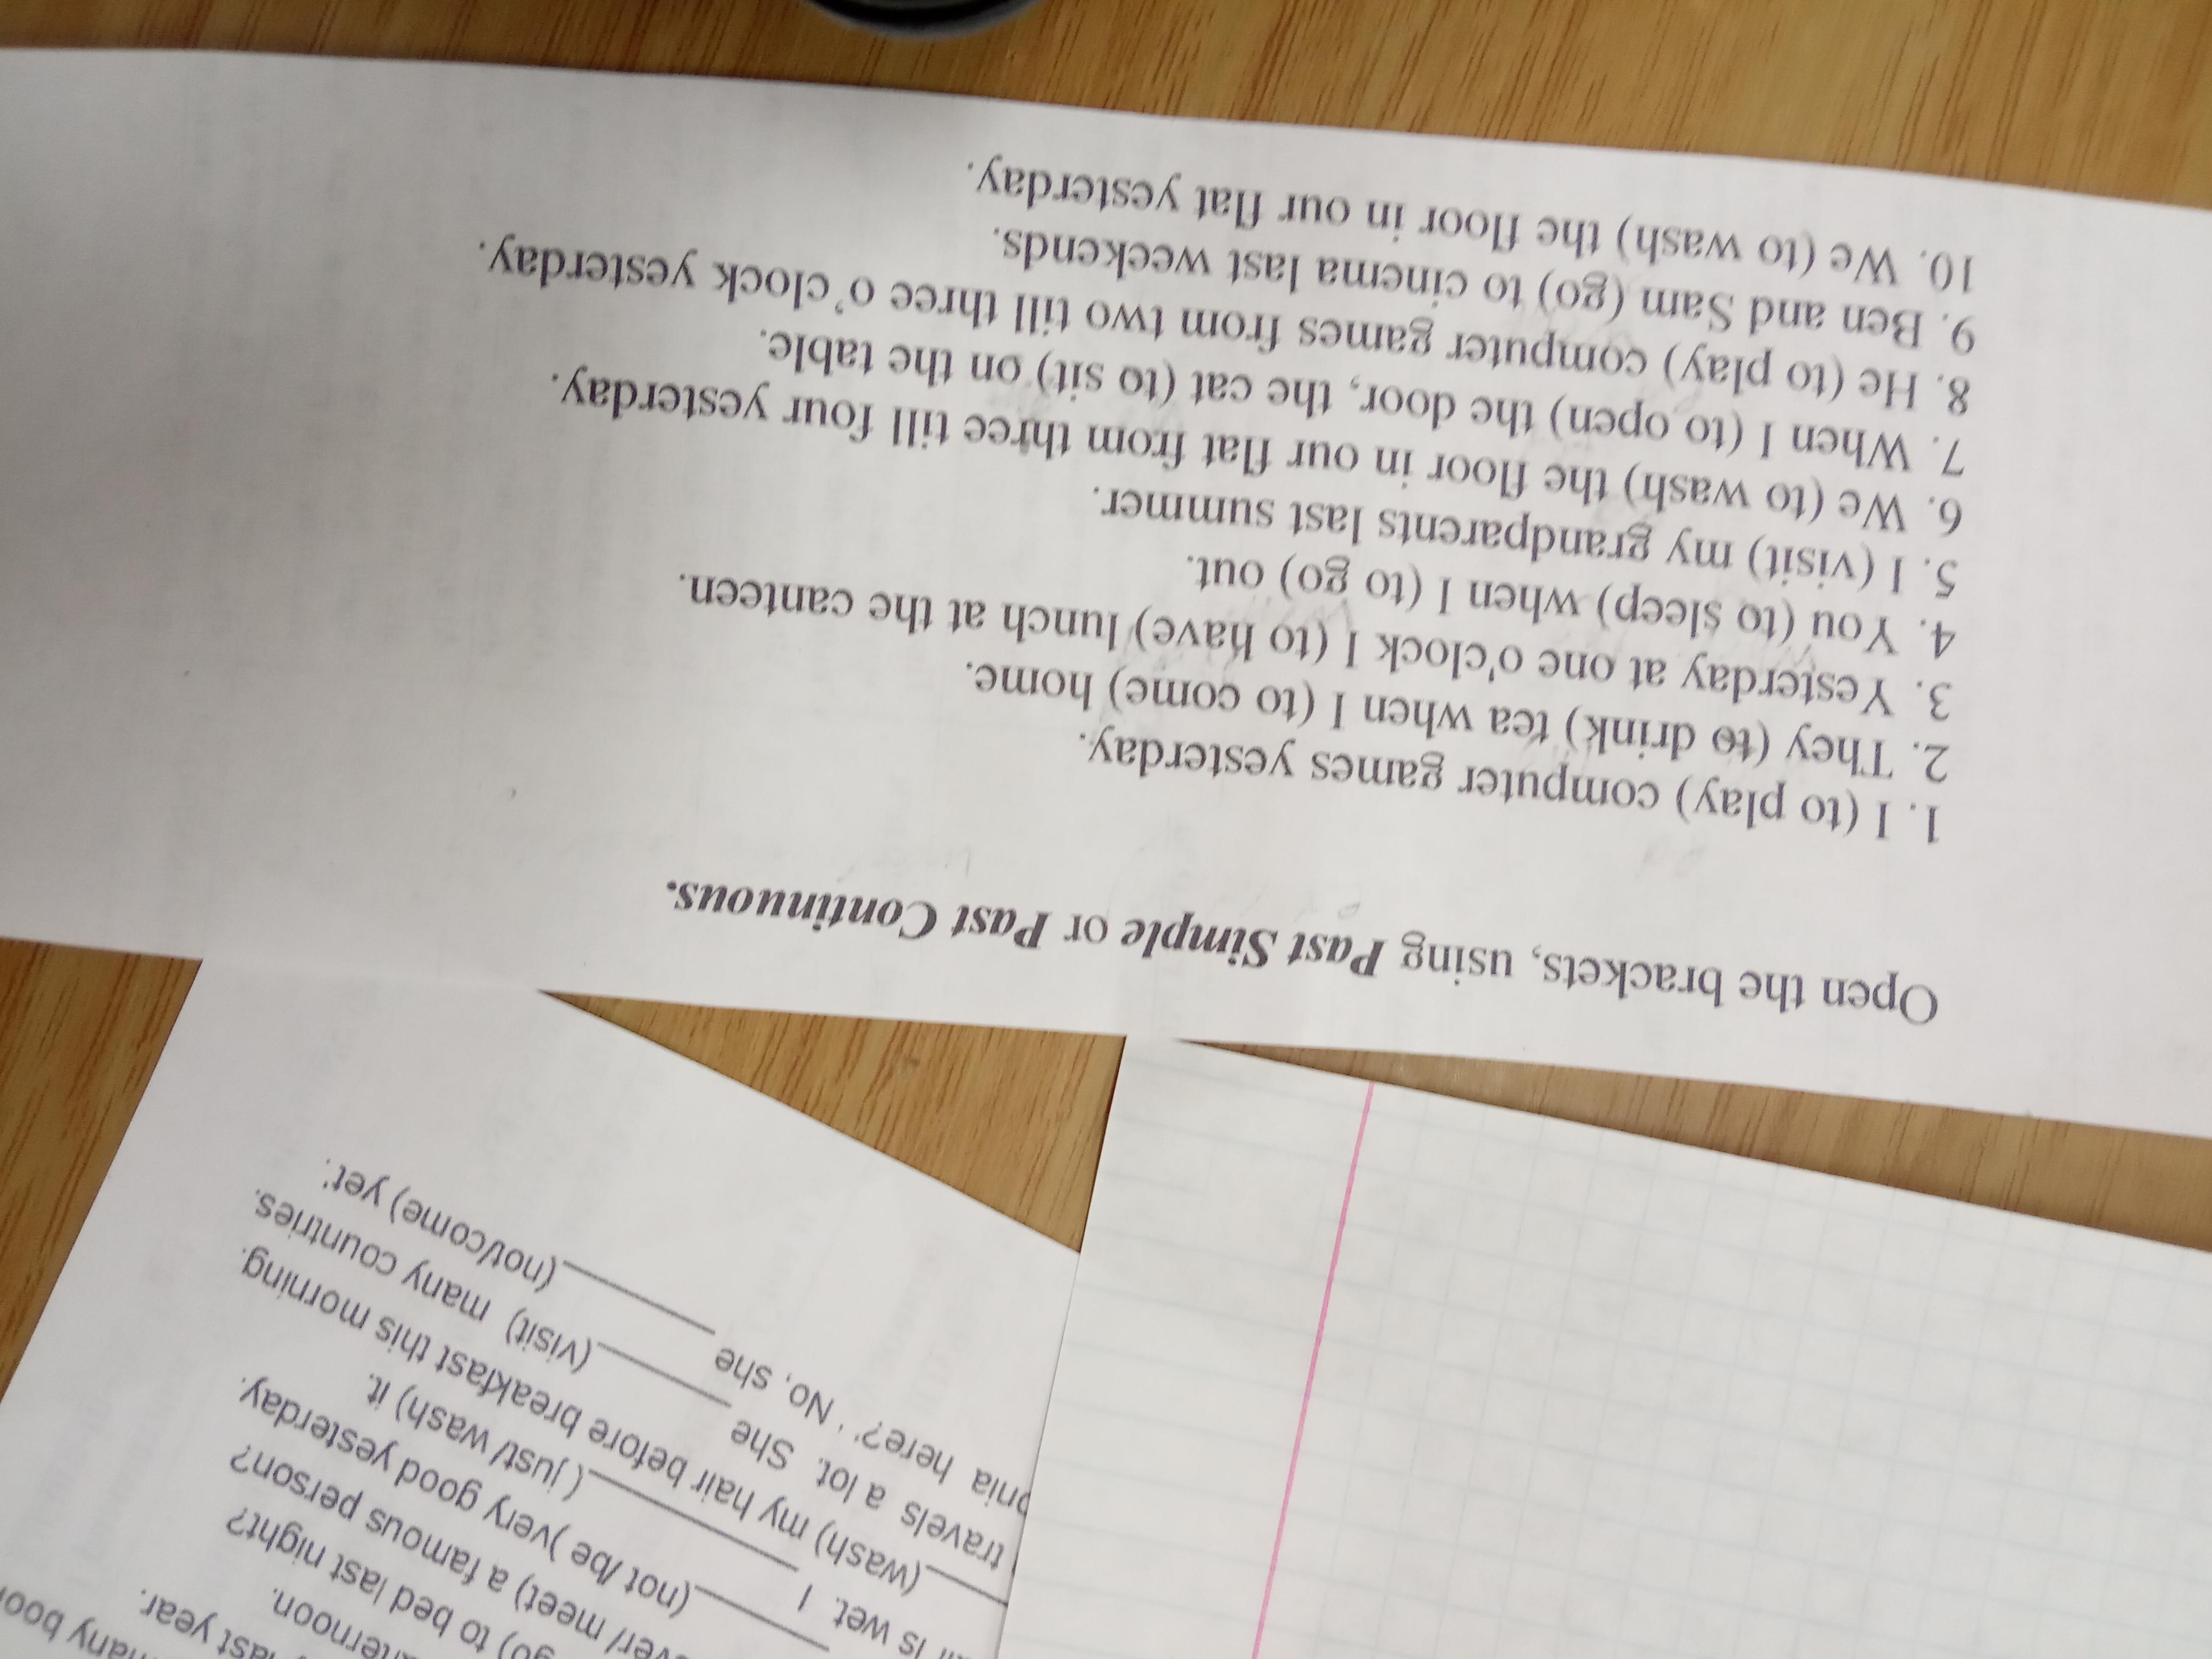 Open the brackets, using Past Simple or Past Continuous.
1. I (to play) computer games yesterday.
2. They (to drink) tea when I (to come) home.
3. Yesterday at one o'clock I (to have) lunch at the canteen.
4. You (to sleep) when I (to go) out.
5. I (visit) my grandparents last summer.
6. We (to wash) the floor in our flat from three till four yesterday.
7. When I (to open) the door, the cat (to sit) on the table.
8. He (to play) computer games from two till three o'clock yesterday.
9. Ben and Sam (go) to cinema last weekends.
10. We (to wash) the floor in our flat yesterday.
last year.
to bed last night?
meet) a famous person?
(not /be )very good yesterday.
is wet. I (just/ wash) it.
(wash) my hair before breakfast this morning.
travels a lot. She (visit) many countries.
here?' ' No, she (not/come) yet'.